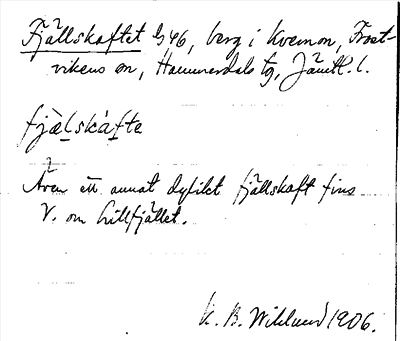 Fjällskaftet G 46, berg i Kvemon, Frost-
vikens sn, Hammerdals tg, Jämtl. l.
fjälskáfte
Även ett annat dylikt fjällskaft fins
V. om Lillfjället.
K. B. Wiklund 1906.